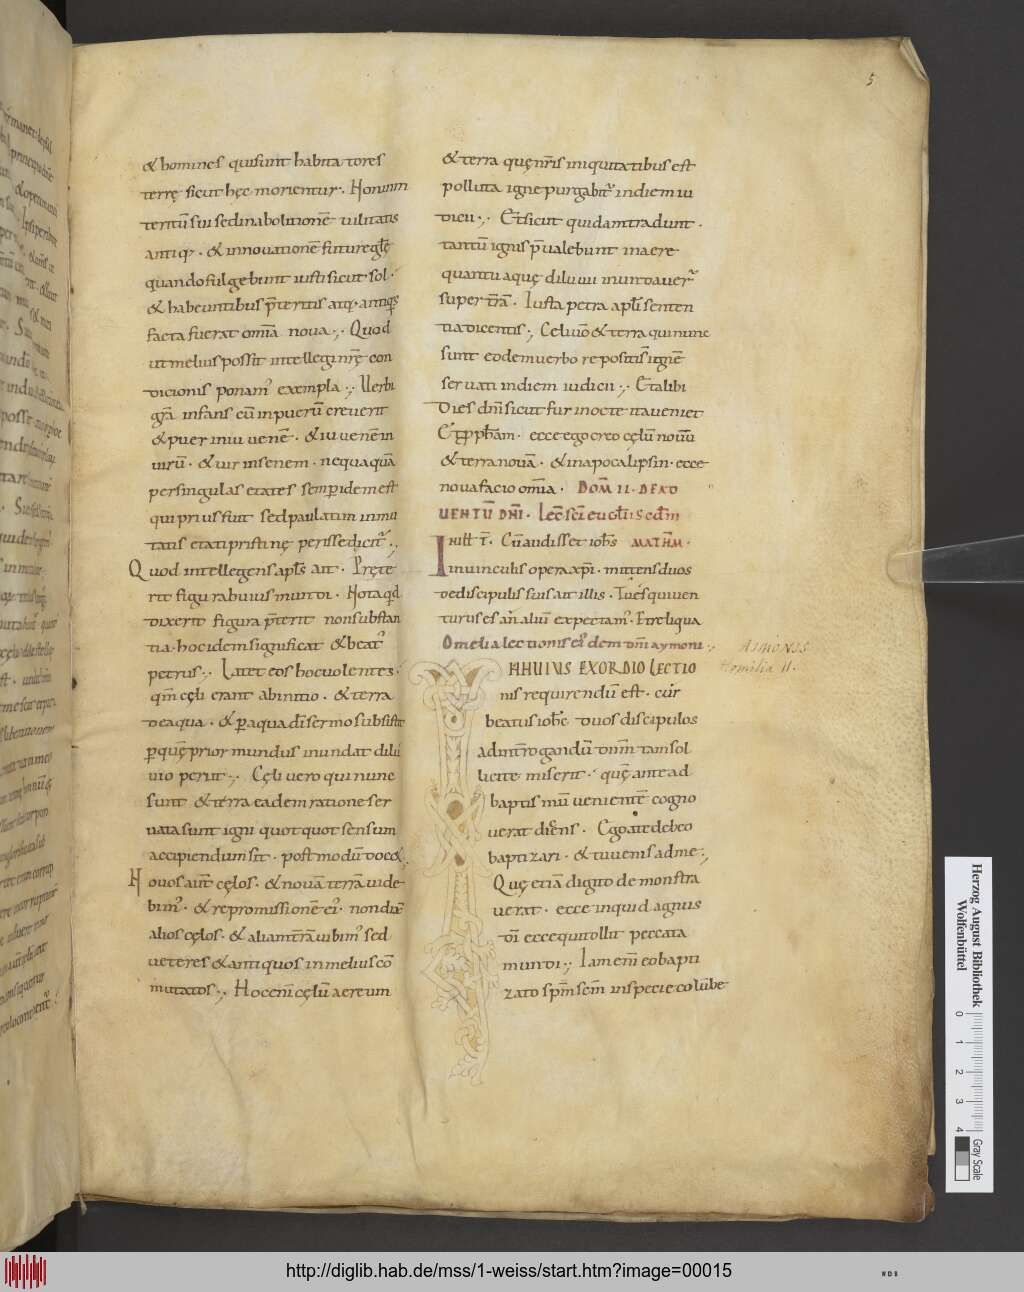 5
& homines qui sunt habitatores
terrę sicut hęc morientur · Non in in
teritū sui sed in abolitionē uilitatis
antiq; · & innouationē futurę glę̄
quando fulgebunt iusti sicut sol ·
& habeuntibus p̄teritis atq; antiq̄s
facta fuerat om̄ia noua ·,· Quod
ut melius possit intellegi nr̄ę con
dicionis ponam' exempla ·,· Uerbi
gr̄a infans cū in puerū creuerit
& puer in iuuenē · & iuuenē in
uirū · & uir in senem · nequaquā
per singulas etates semp idem est
qui prius fuit sed paulatim inmu
tatis etati pristinę perisse dicit' ·,
Quod intellegens apl̄s ait · Pręte
rit figura huius mundi · Nota qd
dixerit figura p̄terit non substan
tia · hoc idem significat & beat'
petrus ·,· Latet eos hoc uolentes ·
qm̄ cęli erant ab initio · & terra
de aqua · & p aqua dī sermo subsistit
p quę prior mundus inundat dilu
uio periit ·,· Cęli uero qui nunc
sunt & terra eadem ratione ser
uata sunt igni quot quot sensum
accipiendum sit · postmodū doc& ,
Nouos aūt cęlos · & nouā terrā uide
bim' · & repromissionē ei' · non dix̄
alios cęlos · & aliam tr̄a uibim' sed
ueteres & antiquos in melius cō
mutatos ·,· Hoc enī cęlū aereum
& terra quę nr̄is iniquitatibus est
polluta igne purgabit' in diem iu
dicii ·,· Et sicut quidam tradunt ·
tantū ignis p̄ualebunt in aere
quantū aquę diluuii inundauer̄
super tr̄ā · Iusta petra apl̄i senten
tia dicentis ·,· Celi uō & terra qui nunc
sunt eodem uerbo repositi s̄ igni
seruati in diem iudicii ·,· Et alibi
Dies dn̄i sicut fur in nocte ita ueniet
Et p pph̄am · ecce ego creo cęlū nouū
& terra nouā · & in apocalipsin · ecce
noua facio om̄ia · DOM̄ II · DE AD
UENTŪ DN̄I · Lec̄ sc̄i euḡlii scdm̄
In illt̄ · Cū audisset ioh̄s MATHM̄ ·
in uinculis opera xp̄i · mittens duos
de discipulis suis ait illis · Tu es qui uen
turus es an̄ aliū expectam' · Et reliqua
Omelia lectionis ei' dem dn̄i aymoni ·,
AIMONIS
Homilia II.
IN HUIUS EXORDIO LECTIO
nis requirendū est · cur
beatus ioh̄s duos discipulos
ad interrogandū dn̄m tam sol
licite miserit · quę ante ad
baptismū uenientē cogno
uerat dicens · Ego a te debeo
baptizari · & tu uenis ad me ·,
Quę etiā digito demonstra
uerat · ecce inquid agnus
dī ecce qui tollit peccata
mundi ·,· Iam enī eo bapti
zato sp̄m sc̄m in specie colūbe
Herzog August Bibliothek
Wolfenbüttel
0 1 2 3 4
Gray Scale
http://diglib.hab.de/mss/1-weiss/start.htm?image=00015